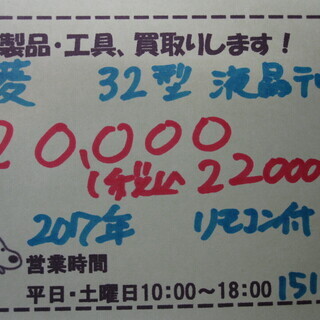 製品・工具、買取りします！
菱 32型 液晶テ
20,000
(税込 22000
2017年 リモコン付
営業時間
平日・土曜日10:00～18:00 151